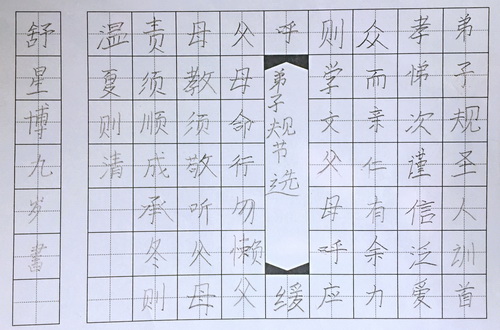 弟子规圣人訓首
孝悌次謹信泛爱
众而亲仁有余力
则学文父母呼应
呼
弟子规节选
缓
父母命行勿懒父
母教须敬听父母
责须顺成承冬则
温夏则清
舒星博九岁書